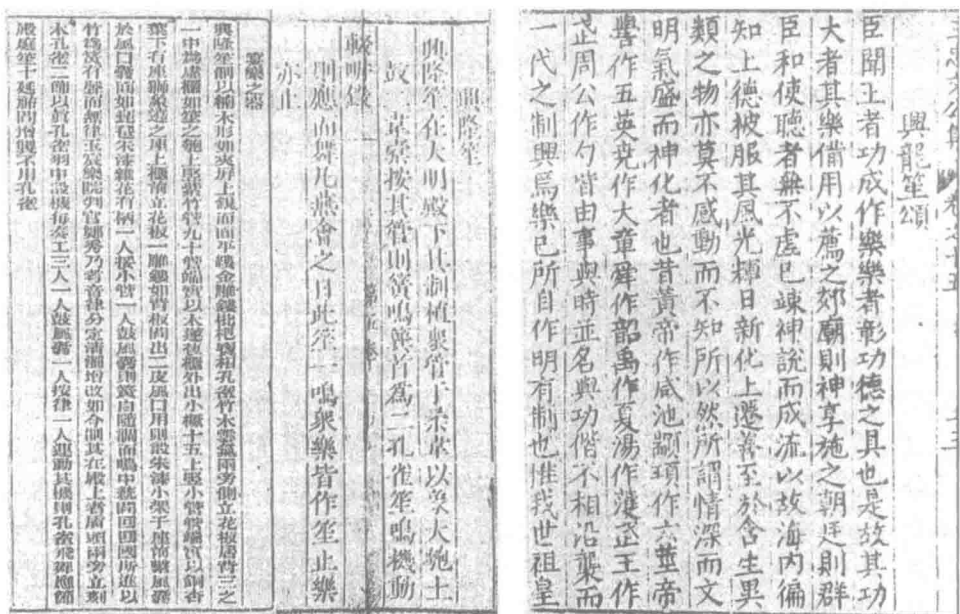 王忠文公集 卷之十五
興龍笙頌
臣聞王者功成作樂樂者彰功德之具也是故其功
大者其樂備用以薦之郊廟則神享施之朝廷則群
臣和使聽者無不虛已竦神說而成流以故海內徧
知上德被服其風光輝日新化上遷善至於含生異
類之物亦莫不感動而不知所以然所謂情深而文
明氣盛而神化者也昔黃帝作咸池顓頊作六莖帝
嚳作五英堯作大章舜作韶禹作夏湯作濩武王作
武周公作勺皆由事與時並名與功偕不相沿襲而
一代之制興焉樂已所自作明有制也惟我世祖皇
興隆笙
興隆笙在大明殿下其制植衆管于柔革以象大匏土
鼓二韋橐按其管則簧鳴簨首為二孔雀笙鳴機動
輟耕錄
則應而舞凡燕會之日此笙一鳴衆樂皆作笙止樂
亦止
宴樂之器
興隆笙制以楠木形如夾屏上銳而面平縷金雕鏤枇杷寶相孔雀竹木雲氣兩旁側立花板居背三之
一中為虛櫃如笙之匏上竪紫竹管九十管端實以木蓮苞櫃外出小橛十五上竪小管管端實以銅杏
葉下有座獅象遶之座上櫃前立花板一雕鏤如背板間出二皮風口用則設朱漆小架于座前繫風囊
於風口囊面如琵琶朱漆雜花有柄一人挼小管一人鼓風囊則簧自隨調而鳴中統間回回國所進以
竹為簧有聲而無律玉宸樂院判官鄭秀乃考音律分定清濁增改如今制其在殿上者盾頭兩旁立刻
木孔雀二飾以真孔雀羽中設機每奏工三人一人鼓風囊一人按律一人運動其機則孔雀飛舞應節
殿庭笙十延祐間增製不用孔雀